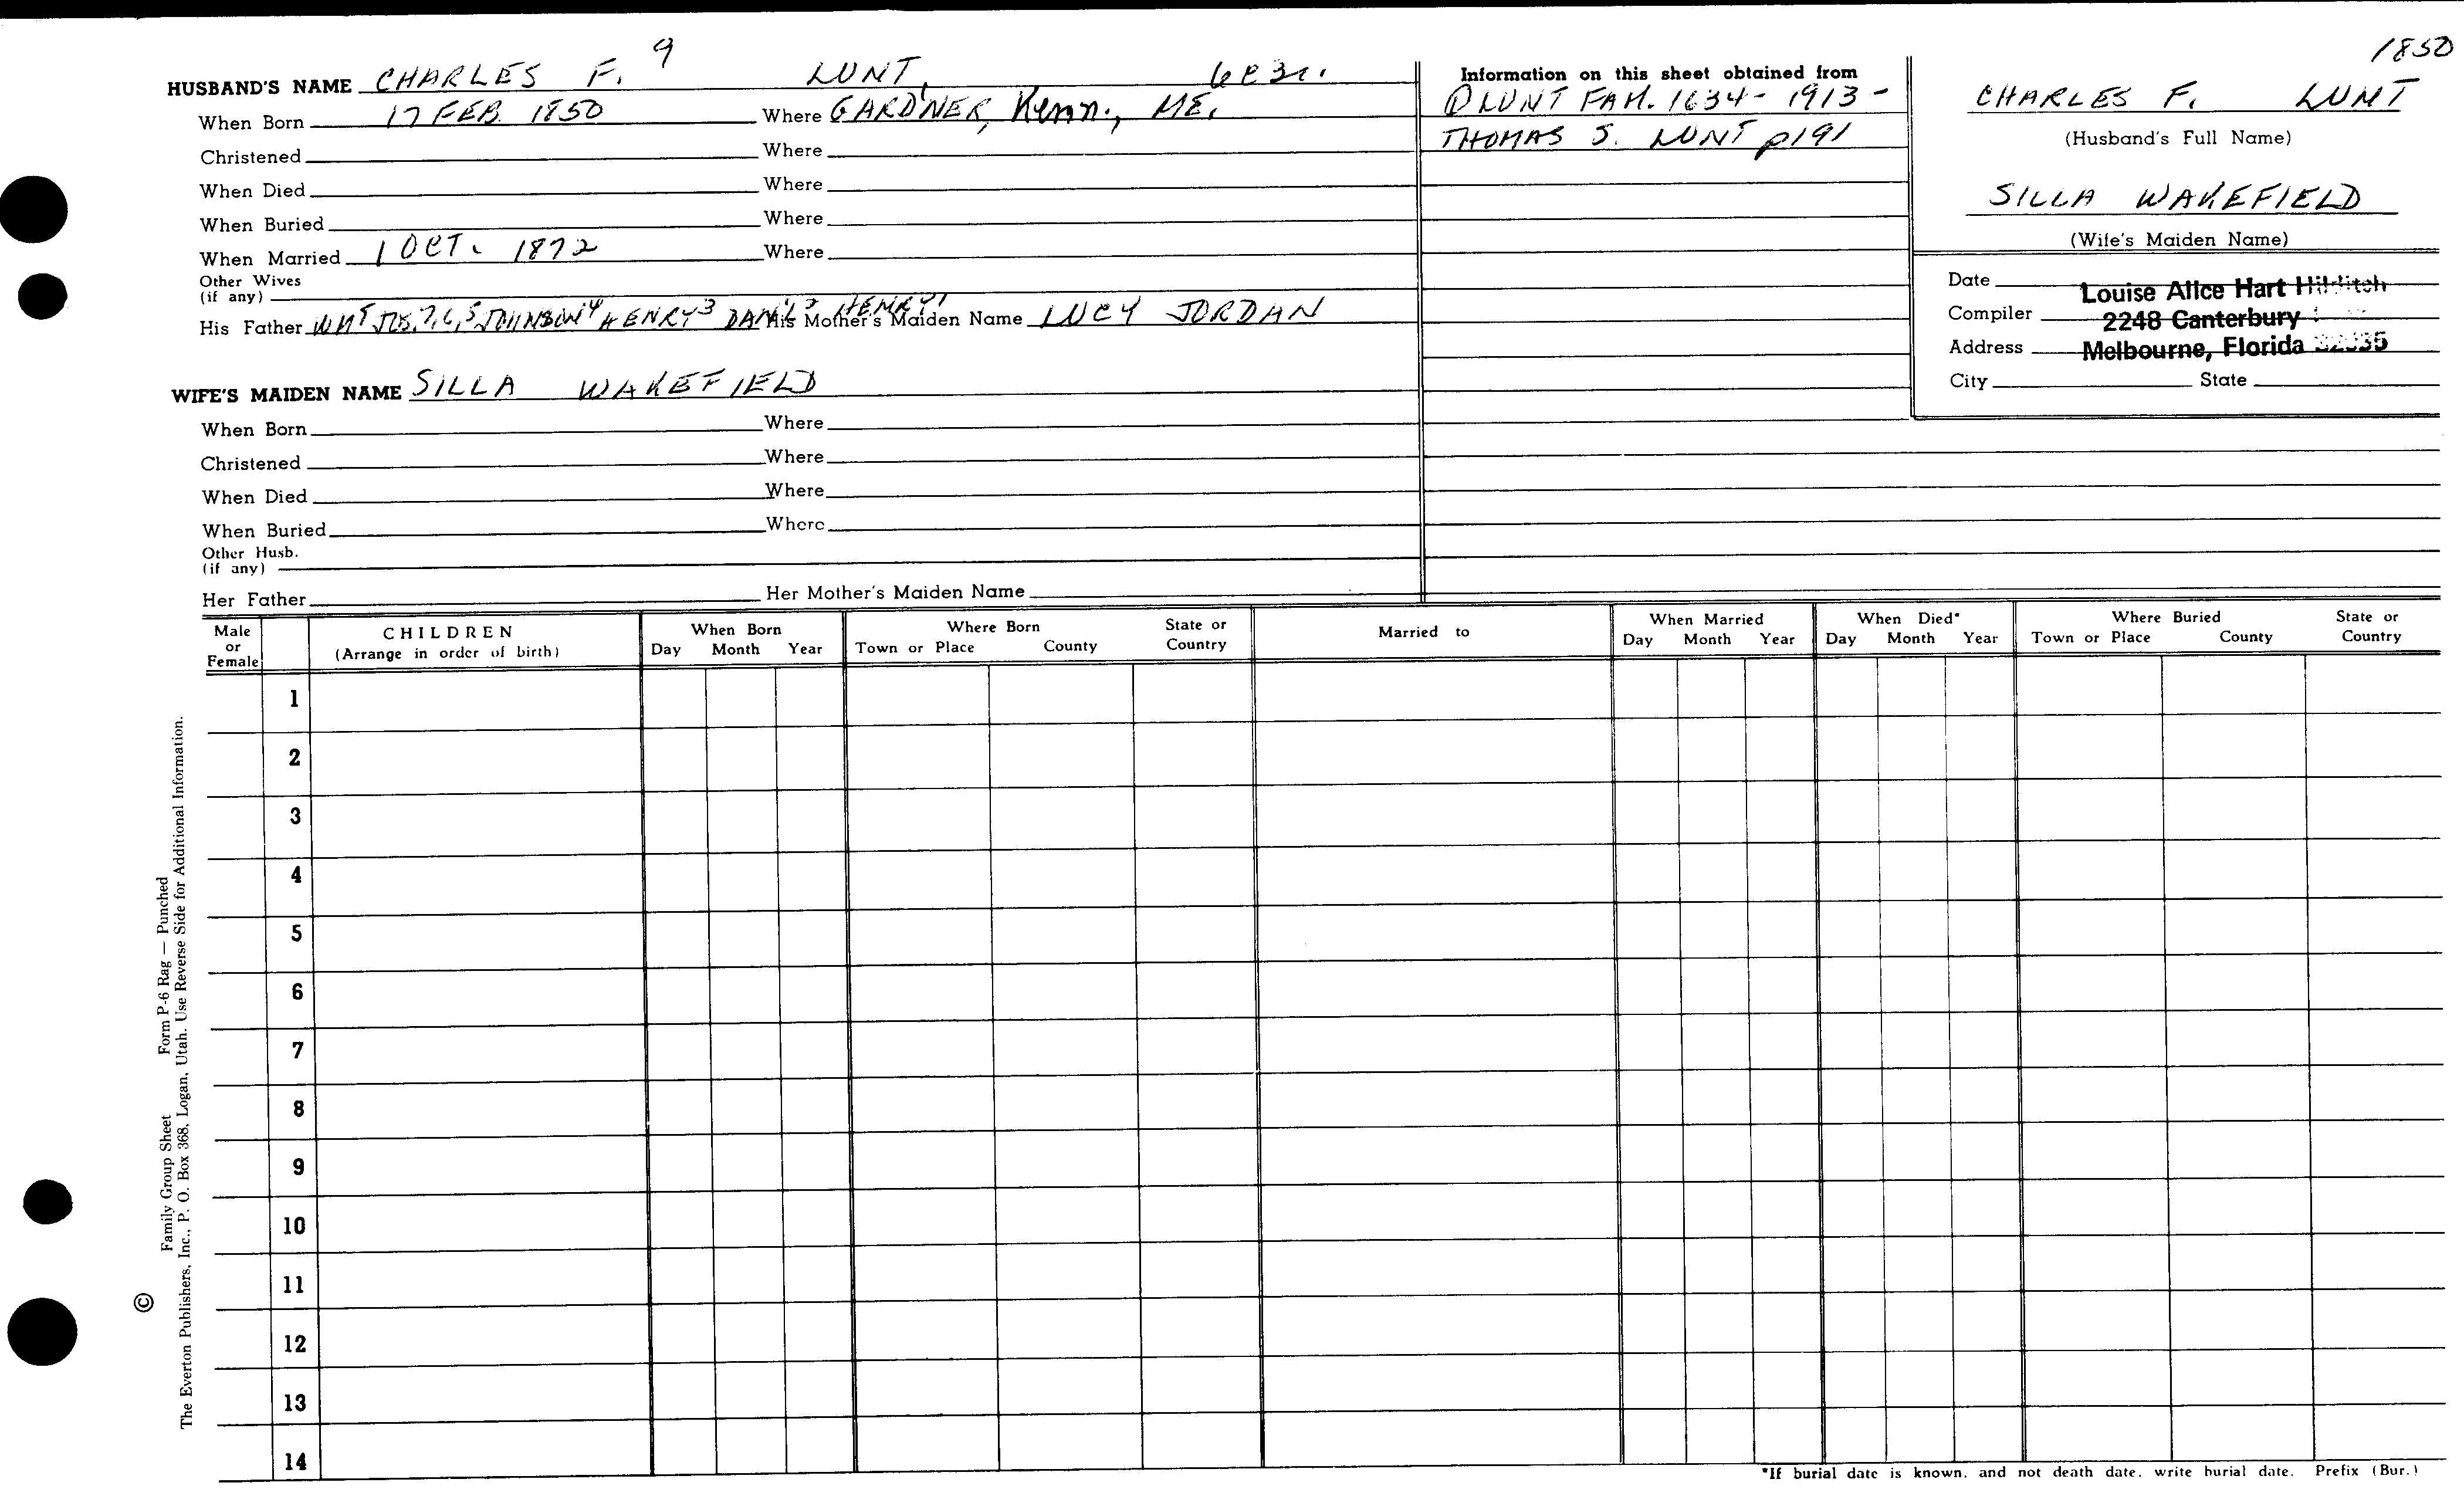 1850
HUSBAND'S NAME CHARLES F. 9 LUNT,
When Born 17 FEB. 1850 Where GARD'NER, Kenn., ME.
Christened Where
When Died Where
When Buried Where
When Married 1 OCT. 1872 Where
Other Wives
(if any)
His Father JOHNSON4 HENRY3 HENRY1 His Mother's Maiden Name LUCY JORDAN
WIFE'S MAIDEN NAME SILLA WAKEFIELD
When Born Where
Christened Where
When Died Where
When Buried Where
Other Husb.
(if any)
Her Father Her Mother's Maiden Name
Information on this sheet obtained from
LUNT FAM. 1634-1913-
THOMAS S. LUNT p191
CHARLES F. LUNT
(Husband's Full Name)
SILLA WAKEFIELD
(Wife's Maiden Name)
Date Louise Alice Hart Hilditch
Compiler 2248 Canterbury
Address Melbourne, Florida
City State
Male or Female CHILDREN (Arrange in order of birth) When Born Day Month Year Where Born Town or Place County State or Country Married to When Married Day Month Year When Died* Day Month Year Where Buried Town or Place County State or Country
1
2
3
4
5
6
7
8
9
10
11
12
13
14
*If burial date is known, and not death date, write burial date. Prefix (Bur.)
© Family Group Sheet Form P-6 Rag — Punched
The Everton Publishers, Inc., P. O. Box 368, Logan, Utah. Use Reverse Side for Additional Information.